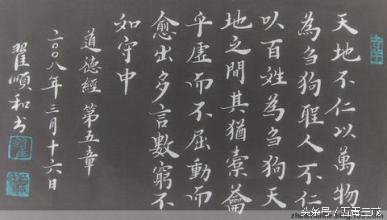 天地不仁以萬物
為刍狗聖人不仁
以百姓為刍狗天
地之間其猶橐籥
乎虛而不屈動而
愈出多言數窮不
如守中
道德經第五章
二〇〇八年三月十六日
翟順和书
头条号